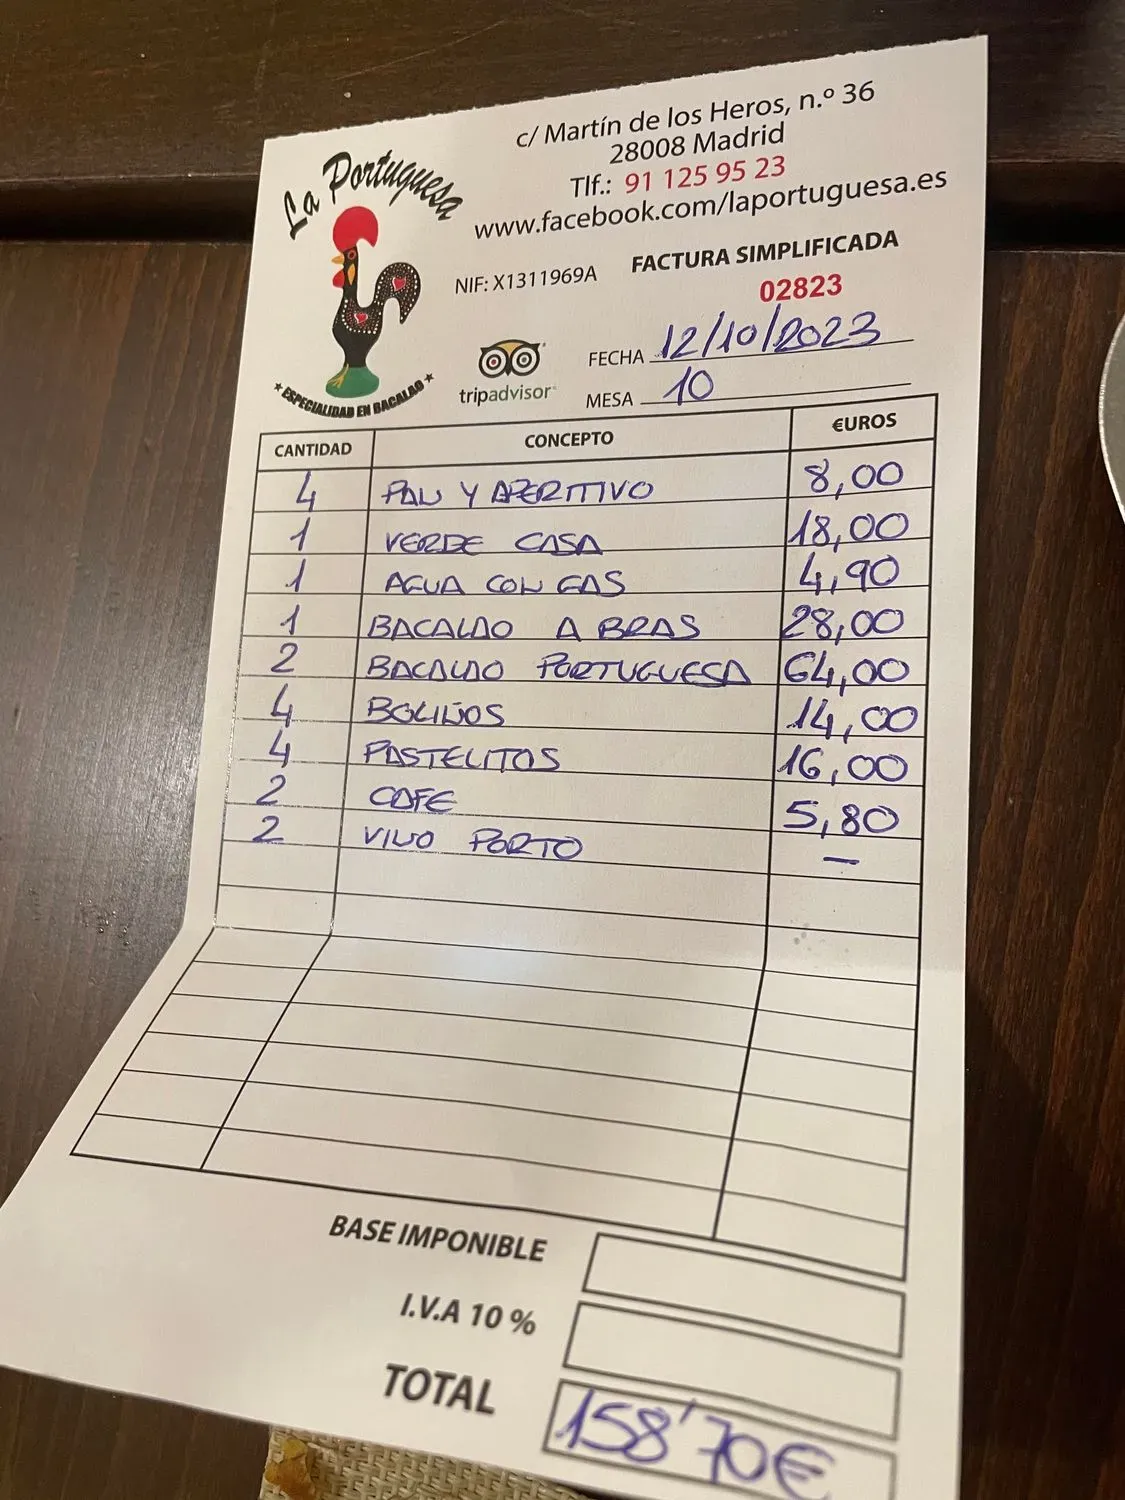 La Portuguesa
★ ESPECIALIDAD EN BACALAO ★
c/ Martín de los Heros, n.º 36
28008 Madrid
Tlf.: 91 125 95 23
www.facebook.com/laportuguesa.es
NIF: X1311969A
FACTURA SIMPLIFICADA
02823
tripadvisor
FECHA 12/10/2023
MESA 10
CANTIDAD CONCEPTO €UROS
4 PAN Y APERITIVO 8,00
1 VERDE CASA 18,00
1 AGUA CON GAS 4,90
1 BACALAO A BRAS 28,00
2 BACALAO PORTUGUESA 64,00
4 BOLIÑOS 14,00
4 PASTELITOS 16,00
2 CAFE 5,80
2 VINO PORTO —
BASE IMPONIBLE
I.V.A 10 %
TOTAL 158'70€